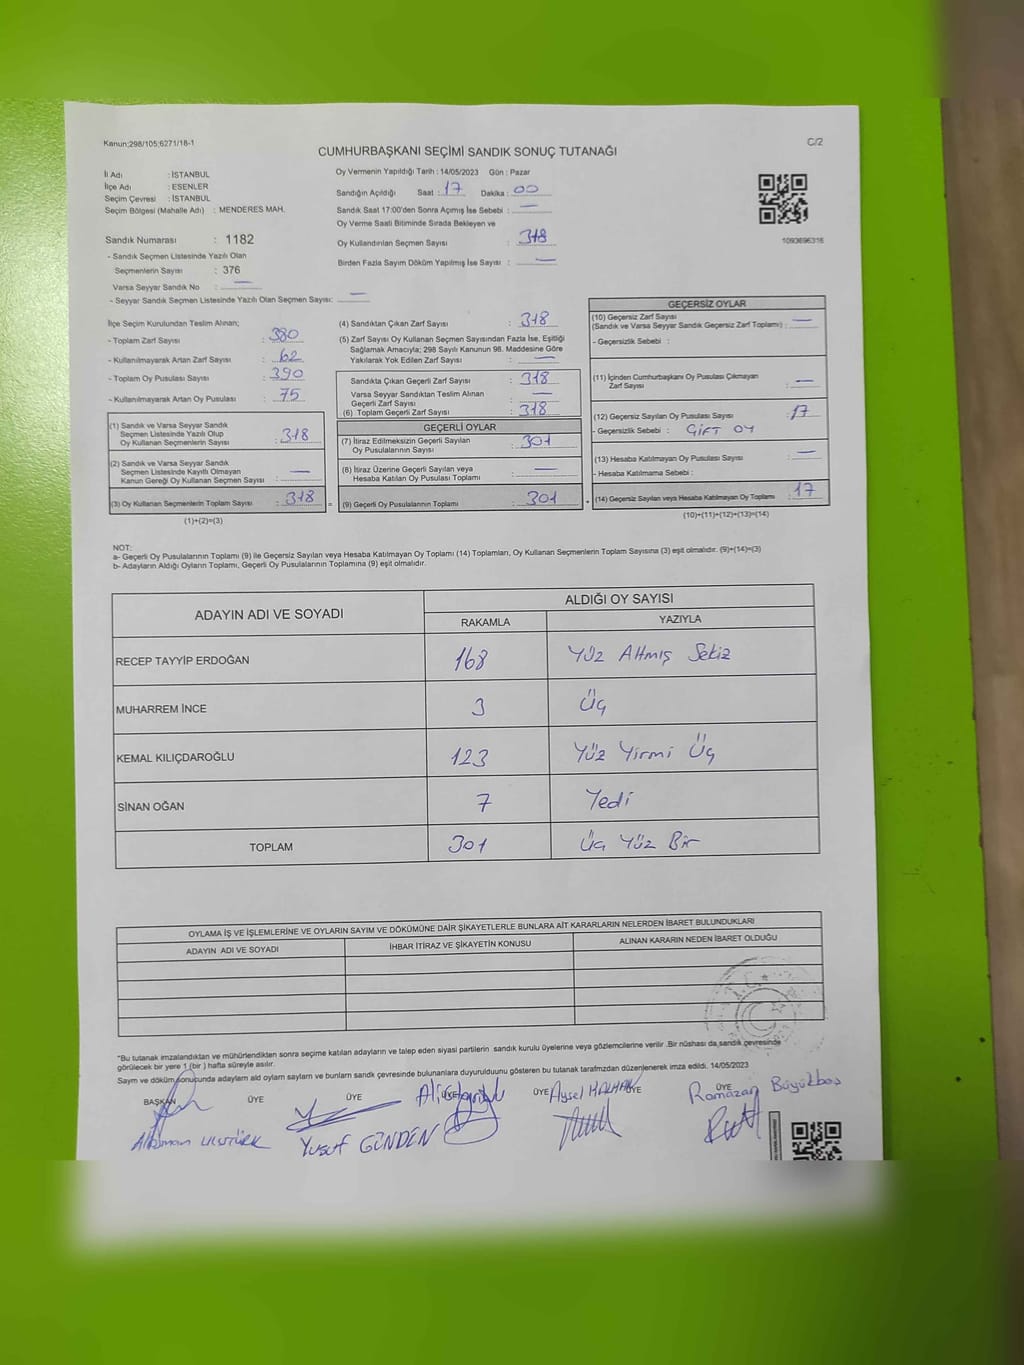 Kanun;298/105;6271/18-1
C/2
CUMHURBAŞKANI SEÇİMİ SANDIK SONUÇ TUTANAĞI
İl Adı : İSTANBUL
İlçe Adı : ESENLER
Seçim Çevresi : İSTANBUL
Seçim Bölgesi (Mahalle Adı) : MENDERES MAH.
Sandık Numarası : 1182
- Sandık Seçmen Listesinde Yazılı Olan
Seçmenlerin Sayısı : 376
Varsa Seyyar Sandık No : —
- Seyyar Sandık Seçmen Listesinde Yazılı Olan Seçmen Sayısı: —
Oy Vermenin Yapıldığı Tarih : 14/05/2023 Gün : Pazar
Sandığın Açıldığı Saat : 17 Dakika : 00
Sandık Saat 17:00'den Sonra Açımış İse Sebebi : —
Oy Verme Saati Bitiminde Sırada Bekleyen ve
Oy Kullandırılan Seçmen Sayısı : 318
Birden Fazla Sayım Döküm Yapılmış İse Sayısı : —
1093696316
İlçe Seçim Kurulundan Teslim Alınan;
- Toplam Zarf Sayısı : 380
- Kullanılmayarak Artan Zarf Sayısı : 62
- Toplam Oy Pusulası Sayısı : 390
- Kullanılmayarak Artan Oy Pusulası : 75
(1) Sandık ve Varsa Seyyar Sandık
Seçmen Listesinde Yazılı Olup
Oy Kullanan Seçmenlerin Sayısı : 318
(2) Sandık ve Varsa Seyyar Sandık
Seçmen Listesinde Kayıtlı Olmayan
Kanun Gereği Oy Kullanan Seçmen Sayısı : —
(3) Oy Kullanan Seçmenlerin Toplam Sayısı : 318
(1)+(2)=(3)
(4) Sandıktan Çıkan Zarf Sayısı : 318
(5) Zarf Sayısı Oy Kullanan Seçmen Sayısından Fazla İse, Eşitliği
Sağlamak Amacıyla; 298 Sayılı Kanunun 98. Maddesine Göre
Yakılarak Yok Edilen Zarf Sayısı : —
Sandıkta Çıkan Geçerli Zarf Sayısı : 318
Varsa Seyyar Sandıktan Teslim Alınan
Geçerli Zarf Sayısı : —
(6) Toplam Geçerli Zarf Sayısı : 318
GEÇERLİ OYLAR
(7) İtiraz Edilmeksizin Geçerli Sayılan
Oy Pusulalarının Sayısı : 301
(8) İtiraz Üzerine Geçerli Sayılan veya
Hesaba Katılan Oy Pusulası Toplamı : —
= (9) Geçerli Oy Pusulalarının Toplamı : 301
GEÇERSİZ OYLAR
(10) Geçersiz Zarf Sayısı
(Sandık ve Varsa Seyyar Sandık Geçersiz Zarf Toplamı) : —
- Geçersizlik Sebebi :
(11) İçinden Cumhurbaşkanı Oy Pusulası Çıkmayan
Zarf Sayısı : —
(12) Geçersiz Sayılan Oy Pusulası Sayısı : 17
- Geçersizlik Sebebi : ÇİFT OY
(13) Hesaba Katılmayan Oy Pusulası Sayısı : —
- Hesaba Katılmama Sebebi :
+ (14) Geçersiz Sayılan veya Hesaba Katılmayan Oy Toplamı : 17
(10)+(11)+(12)+(13)=(14)
NOT:
a- Geçerli Oy Pusulalarının Toplamı (9) ile Geçersiz Sayılan veya Hesaba Katılmayan Oy Toplamı (14) Toplamları, Oy Kullanan Seçmenlerin Toplam Sayısına (3) eşit olmalıdır. (9)+(14)=(3)
b- Adayların Aldığı Oyların Toplamı, Geçerli Oy Pusulalarının Toplamına (9) eşit olmalıdır.
ADAYIN ADI VE SOYADI
ALDIĞI OY SAYISI
RAKAMLA YAZIYLA
RECEP TAYYİP ERDOĞAN 168 Yüz Altmış Sekiz
MUHARREM İNCE 3 Üç
KEMAL KILIÇDAROĞLU 123 Yüz Yirmi Üç
SİNAN OĞAN 7 Yedi
TOPLAM 301 Üç Yüz Bir
OYLAMA İŞ VE İŞLEMLERİNE VE OYLARIN SAYIM VE DÖKÜMÜNE DAİR ŞİKAYETLERLE BUNLARA AİT KARARLARIN NELERDEN İBARET BULUNDUKLARI
ADAYIN ADI VE SOYADI İHBAR İTİRAZ VE ŞİKAYETİN KONUSU ALINAN KARARIN NEDEN İBARET OLDUĞU
*Bu tutanak imzalandıktan ve mühürlendikten sonra seçime katılan adayların ve talep eden siyasi partilerin sandık kurulu üyelerine veya gözlemcilerine verilir .Bir nüshası da sandık çevresinde
görülecek bir yere 1 (bir ) hafta süreyle asılır.
Sayım ve döküm sonucunda adayların ald oyların sayların ve bunların sandık çevresinde bulunanlara duyurulduunu gösteren bu tutanak tarafımzdan düzenlenerek imza edildi. 14/05/2023
BAŞKAN ÜYE ÜYE ÜYE ÜYE ÜYE ÜYE
Aysel Ramazan Büyükbaş
Yusuf GÜNDEN